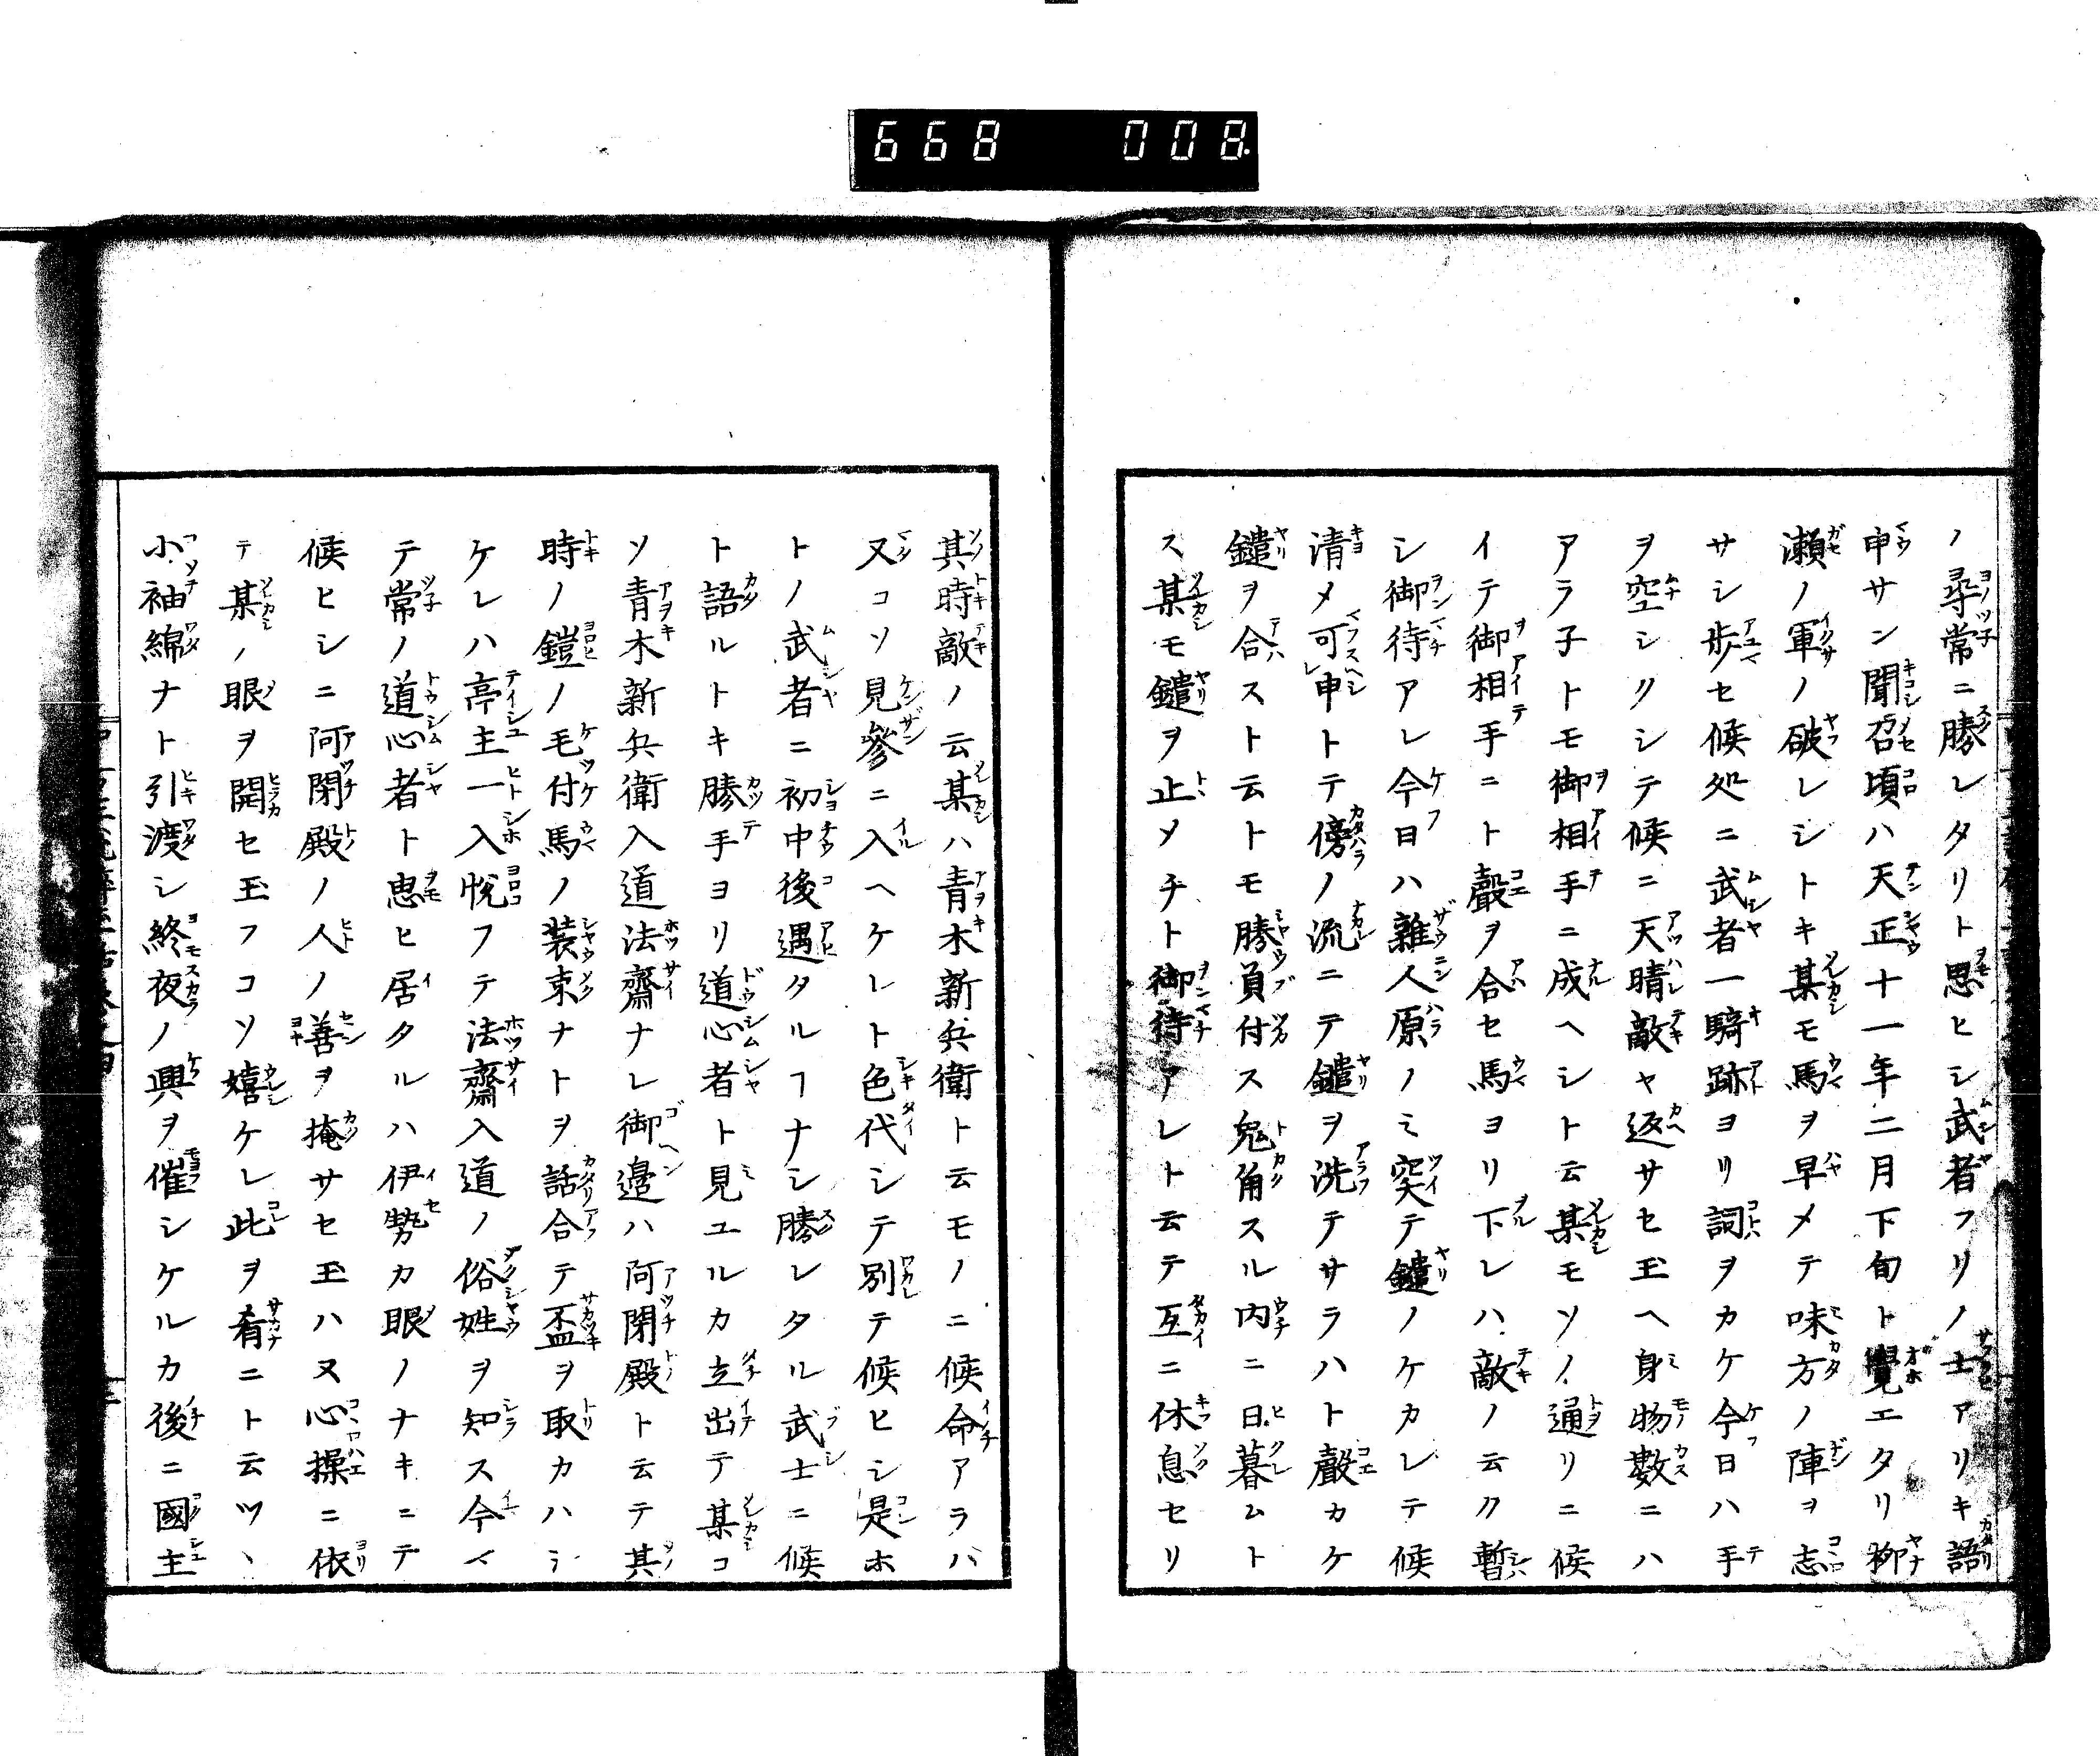 668 008
ノ尋常ニ勝レタリト思ヒシ武者フリノ士アリキ語
申サン聞召頃ハ天正十一年二月下旬ト覺エタリ栁
瀬ノ軍ノ破レシトキ某モ馬ヲ早メテ味方ノ陣ヲ志
サシ歩セ候処ニ武者一騎跡ヨリ詞ヲカケ今日ハ手
ヲ空シクシテ候ニ天晴敵ヤ返サセ玉ヘ身物數ニハ
アラ子トモ御相手ニ成ヘシト云某モソノ通リニ候
イテ御相手ニト聲ヲ合セ馬ヨリ下レハ敵ノ云ク暫
シ御待アレ今日ハ雜人原ノミ突テ鑓ノケカレテ候
清メ可申トテ傍ノ流ニテ鑓ヲ洗テサラハト聲カケ
鑓ヲ合ストモ云トモ勝負付ス兔角スル内ニ日暮ムト
ス某モ鑓ヲ止メチト御待アレト云テ互ニ休息セリ
其時敵ノ云某ハ青木新兵衛ト云モノニ候命アラバ
又コソ見參ニ入ヘケレト色代シテ別テ候ヒシ是ホ
トノ武者ニ初中後遇タルヿナシ勝レタル武士ニ候
ト語ルトキ勝手ヨリ道心者ト見ユルカ立出テ某コ
ソ青木新兵衛入道法齋ナレ御邉ハ阿閉殿ト云テ其
時ノ鎧ノ毛付馬ノ装束ナトヲ話合テ盃ヲ取カハシ
ケレハ亭主一入悦フテ法齋入道ノ俗姓ヲ知ス今マ
テ常ノ道心者ト思ヒ居タルハ伊勢カ眼ノナキニテ
候ヒシニ阿閉殿ノ人ノ善ヲ掩サセ玉ハヌ心操ニ依
テ某ノ眼ヲ開セ玉フコソ嬉ケレ此ヲ肴ニト云ツヽ
小袖綿ナト引渡シ終夜ノ興ヲ催シケルカ後ニ國主